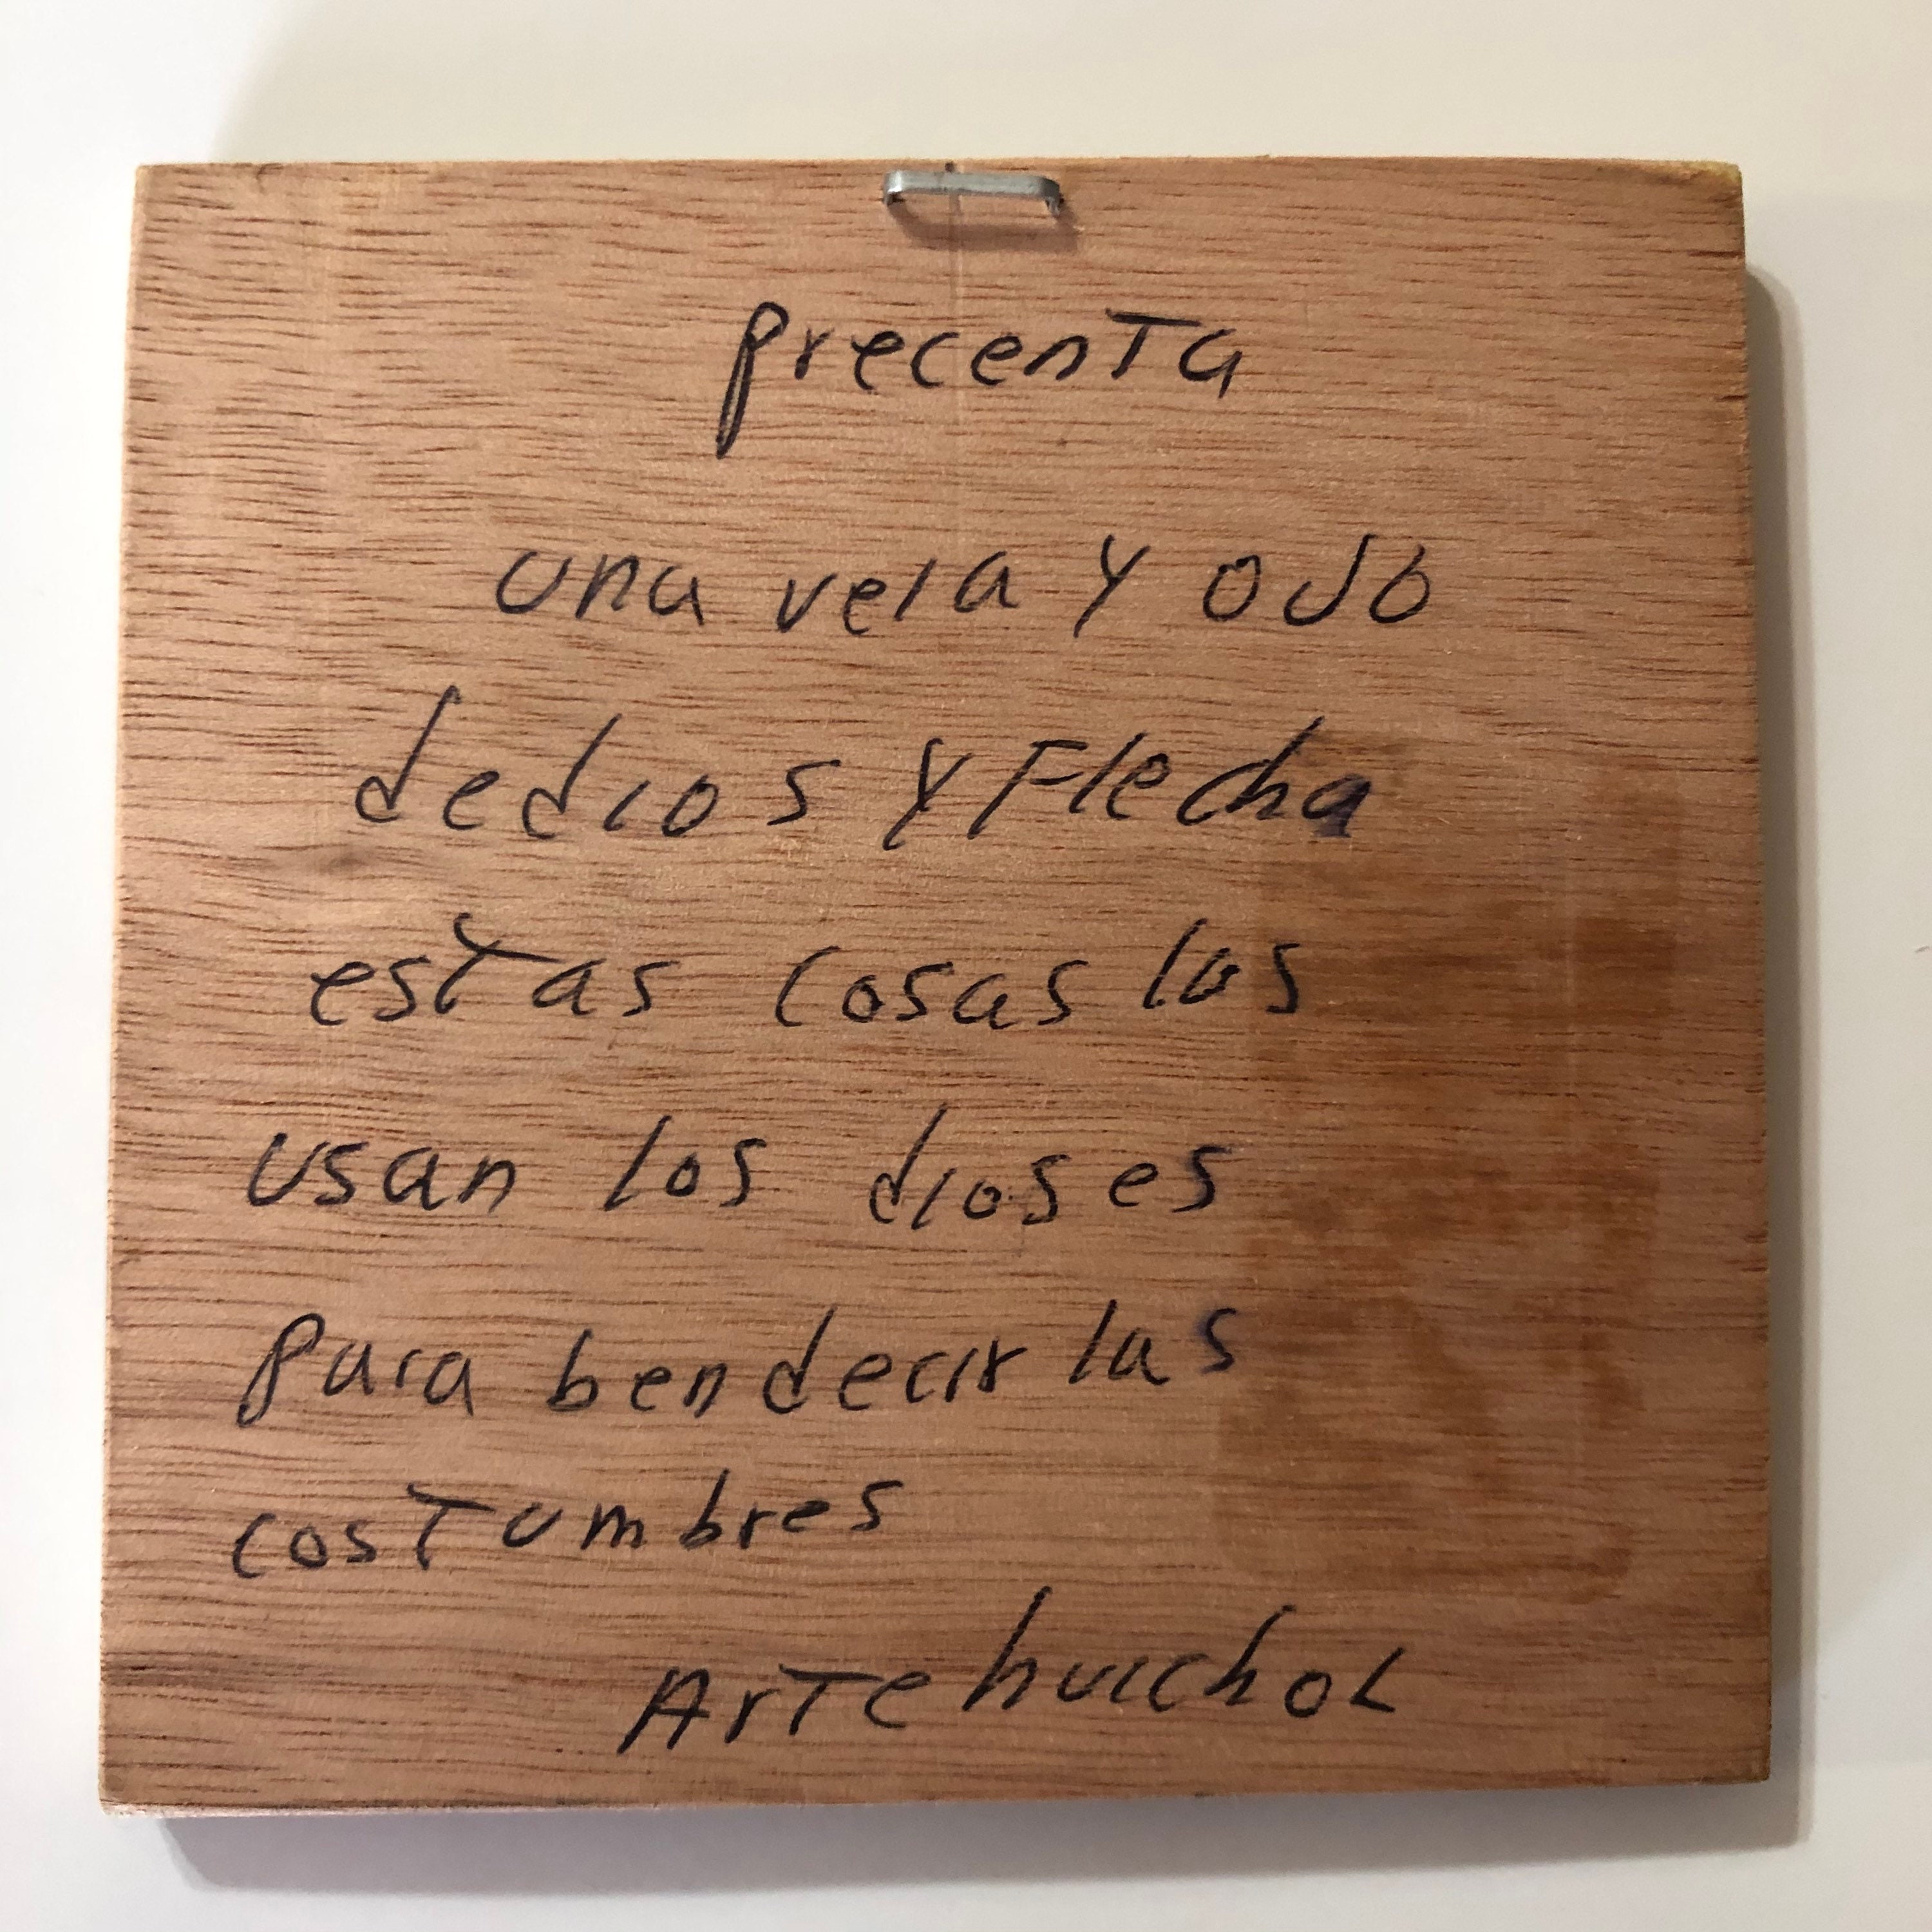 precenta
una vela y oJo
dedios y Flecha
estas cosas las
usan los dioses
para bendecir las
costumbres
Arte huichol